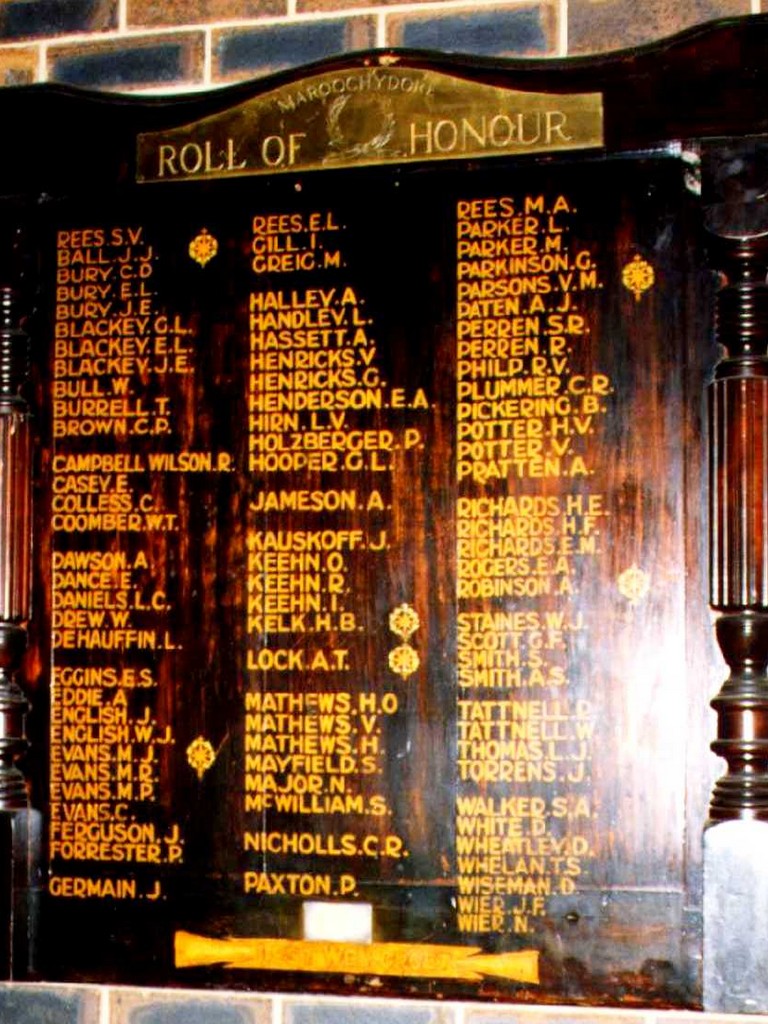 MAROOCHYDORE
ROLL OF HONOUR
REES.S.V.
BALL.J.J.
BURY.C.D
BURY.E.L.
BURY.J.E.
BLACKEY.G.L.
BLACKEY.E.L.
BLACKEY.J.E.
BULL.W.
BURRELL.T.
BROWN.C.P.
CAMPBELL WILSON.R.
CASEY.E.
COLLESS.C.
COOMBER.W.T.
DAWSON.A.
DANCE.E.
DANIELS.L.C.
DREW.W.
DEHAUFFIN.L.
EGGINS.E.S.
EDDIE.A
ENGLISH.J.
ENGLISH.W.J.
EVANS.M.J.
EVANS.M.R.
EVANS.M.P.
EVANS.C.
FERGUSON.J.
FORRESTER.P.
GERMAIN.J.
REES.E.L.
GILL.I.
GREIG.M.
HALLEY.A.
HANDLEY.L.
HASSETT.A.
HENRICKS.V
HENRICKS.G.
HENDERSON.E.A.
HIRN.L.V.
HOLZBERGER.P.
HOOPER.G.L.
JAMESON.A.
KAUSKOFF.J.
KEEHN.O.
KEEHN.R.
KEEHN.I.
KELK.H.B.
LOCK.A.T.
MATHEWS.H.O
MATHEWS.V.
MATHEWS.H.
MAYFIELD.S.
MAJOR.N.
McWILLIAM.S.
NICHOLLS.C.R.
PAXTON.P.
REES.M.A.
PARKER.L.
PARKER.M.
PARKINSON.G.
PARSONS.V.M.
PATEN.A.J.
PERREN.S.R.
PERREN.R.
PHILP.R.V.
PLUMMER.C.R.
PICKERING.B.
POTTER.H.V.
POTTER.V.
PRATTEN.A.
RICHARDS.H.E.
RICHARDS.H.F.
RICHARDS.E.M.
ROGERS.E.A.
ROBINSON.A.
STAINES.W.J.
SCOTT.G.F.
SMITH.S.
SMITH.A.S.
TATTNELL.D.
TATTNELL.W.
THOMAS.L.J.
TORRENS.J.
WALKER.S.A.
WHITE.D.
WHEATLEY.D.
WHELAN.T.S.
WISEMAN.D
WIER.J.F.
WIER.N.